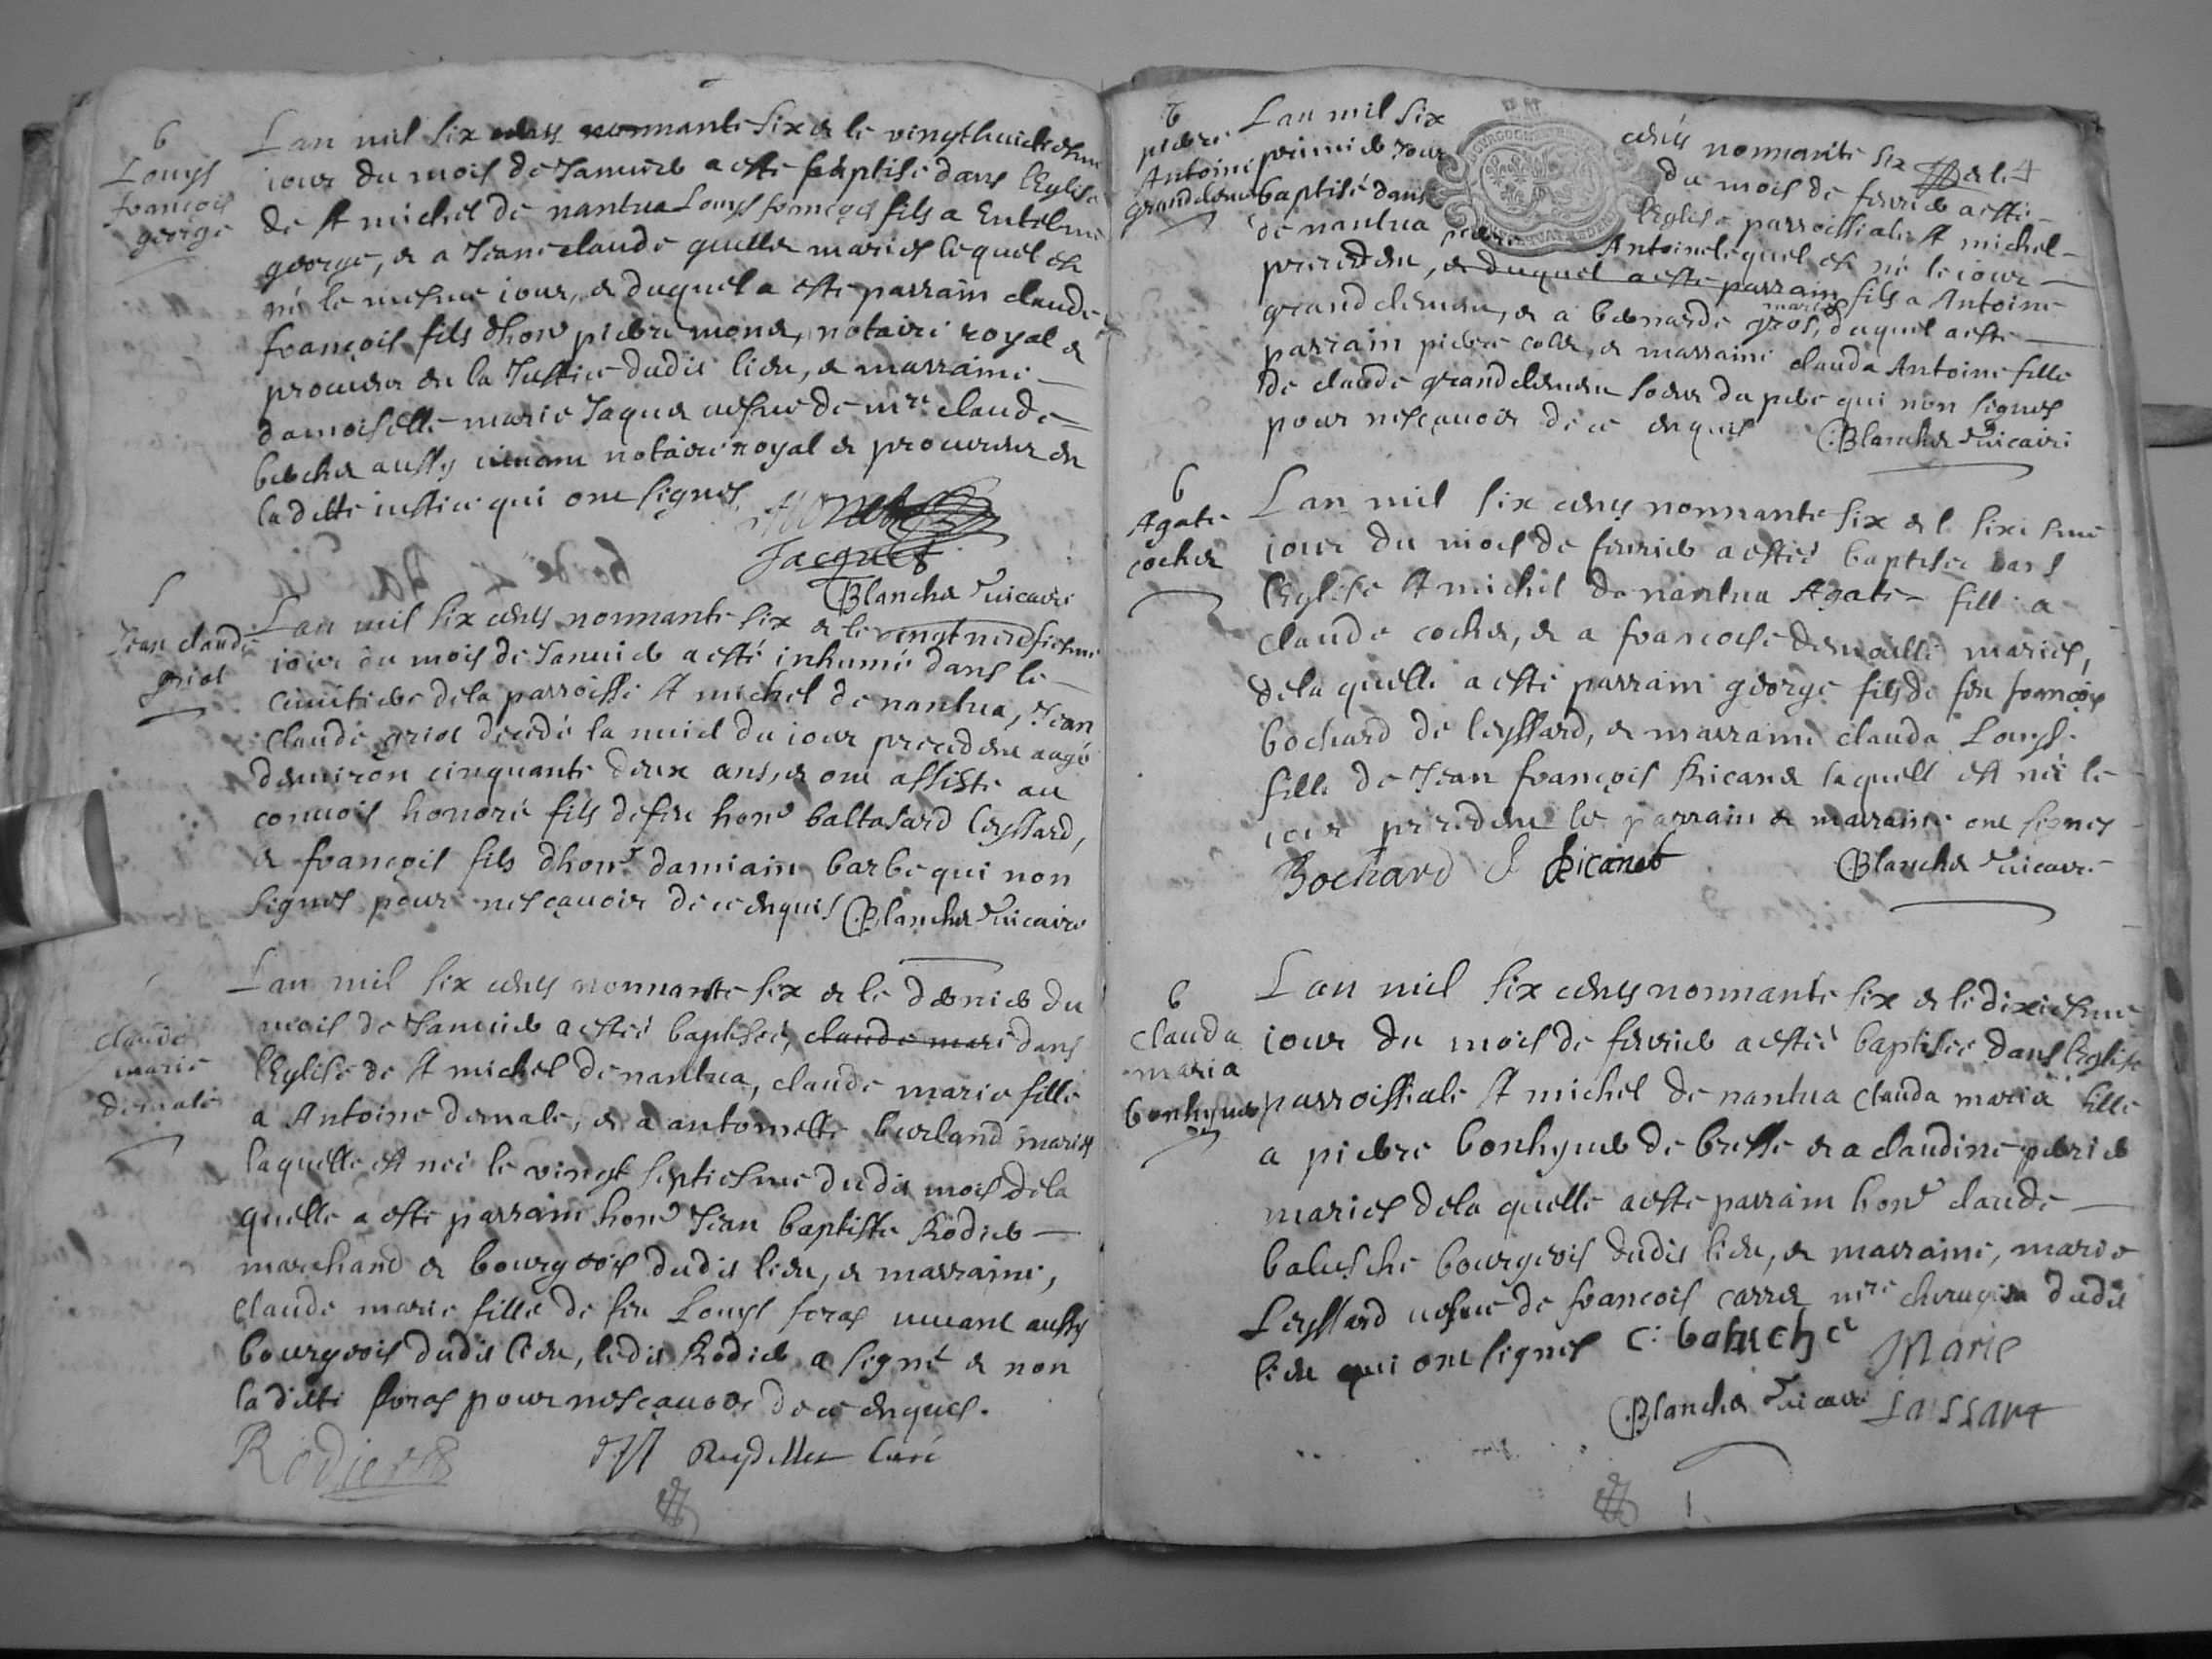 b
Louys
francois
george
Lan mil six cents nonnante six & le vingthuictiesme
iour du mois de Januier a esté baptisé dans lEglise
de st michel de nantua Louys francois fils a Entelme
george, & a Jeane claude quillet mariés lequel est
né le mesme iour, & duquel a esté parrain claude
francois fils dhonr pierre monet, notaire royal &
procureur en la Justice dudit lieu, & marraine
damoiselle marie Jaquet vesue de mre claude
berchet aussy viuant notaire royal & procureur en
laditte iustice qui ont signés
Monet
Jacquet
Blanchet vicaire
S
Jean claude
griot
Lan mil six cents nonnante six & le vingt neufiesme
iour du mois de Januier a esté inhumé dans le
cimitiere dela parroisse st michel de nantua, Jean
claude griot decedé la nuict du iour precedent aagé
denuiron cinquante deux ans, & ont assisté au
conuois honoré fils defeu honr baltasard leyssard,
& francois fils dhonr damiain barbe qui non
signés pour nescauoir de ce enquis Blanchet vicaire
claude
marie
demale
Lan mil six cents nonnante six & le dernier du
mois de Januier a estéé baptiséé, claude mare dans
lEglise de st michel de nantua, claude marie fille
a Antoine demale, & a antoinette burland mariés
laquelle est néé le vingt septiesme dudit mois dela
quelle a esté parrain honr Jean baptiste Rodier
marchand & bourgeois dudit lieu, & marraine,
claude marie fille de feu Louys foras viuant aussy
bourgeois dudit lieu, ledit Rodier a signé & non
laditte foras pour nescauoir de ce enquis.
Rodier
Curé
b
pierre
Antoine
grandclement
Lan mil six cents nonnante six & le
premier iour du mois de feurier a esté
baptisé dans lEglise parroissiale st michel
de nantua pierre Antoine lequel est né le iour
precedent, & duquel a esté parrain fils a Antoine
grandclement, & a bernarde gros, mariés duquel a esté
parrain pierre colet, & marraine clauda Antoine fille
de claude grandclement soeur du pere qui non signés
pour nescauoir de ce enquis Blanchet vicaire
b
Agate
cochet
Lan mil six cents nonnante six & le sixiesme
iour du mois de feurier a estéé baptiséé dans
lEglise st michel de nantua Agate fille a
claude cochet, & a francoise demoille mariés,
dela quelle a esté parrain george fils de feu francois
bochard de leyssard, & marraine clauda Louyse
fille de Jean francois Picanet laquelle est néé le
iour precedent les parrain & marraine ont signés
Bochard Picanet Blanchet vicaire
b
clauda
maria
bonhyuer
Lan mil six cents nonnante six & le dixiesme
iour du mois de feurier a estéé baptiséé dans lEglise
parroissiale st michel de nantua clauda maria fille
a pierre bonhyuer de bresse & a claudine perrier
mariés dela quelle a esté parrain honr claude
balusche bourgeois dudit lieu, & marraine, marie
Leyssard vesue de francois carret mre chirugien dudit
lieu qui ont signés C: baluche Marie
Blanchet vicaire Laissart